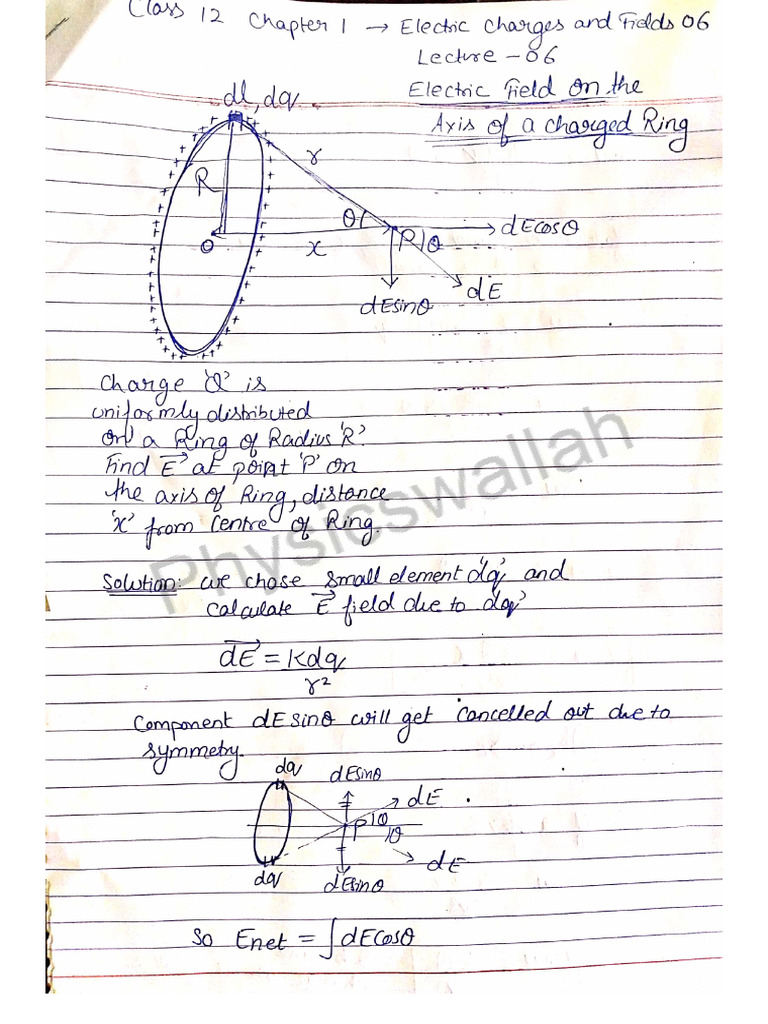 Class 12 Chapter 1 → Electric Charges and Fields 06
Lecture - 06
Electric Field on the
Axis of a Charged Ring
dl, dq
R
r
θ
O
x
P
θ
dEcosθ
dE
dEsinθ
Charge 'Q' is
uniformly distributed
on a Ring of Radius 'R'.
Find E→ at point 'P' on
the axis of Ring, distance
'x' from Centre of Ring.
Solution: we chose small element 'dq' and
calculate E→ field due to 'dq'
dE→ = Kdq
r²
Component dEsinθ will get cancelled out due to
symmetry.
dq
dEsinθ
dE
P
θ
θ
dE
dq
dEsinθ
So Enet = ∫dEcosθ
Physicswallah